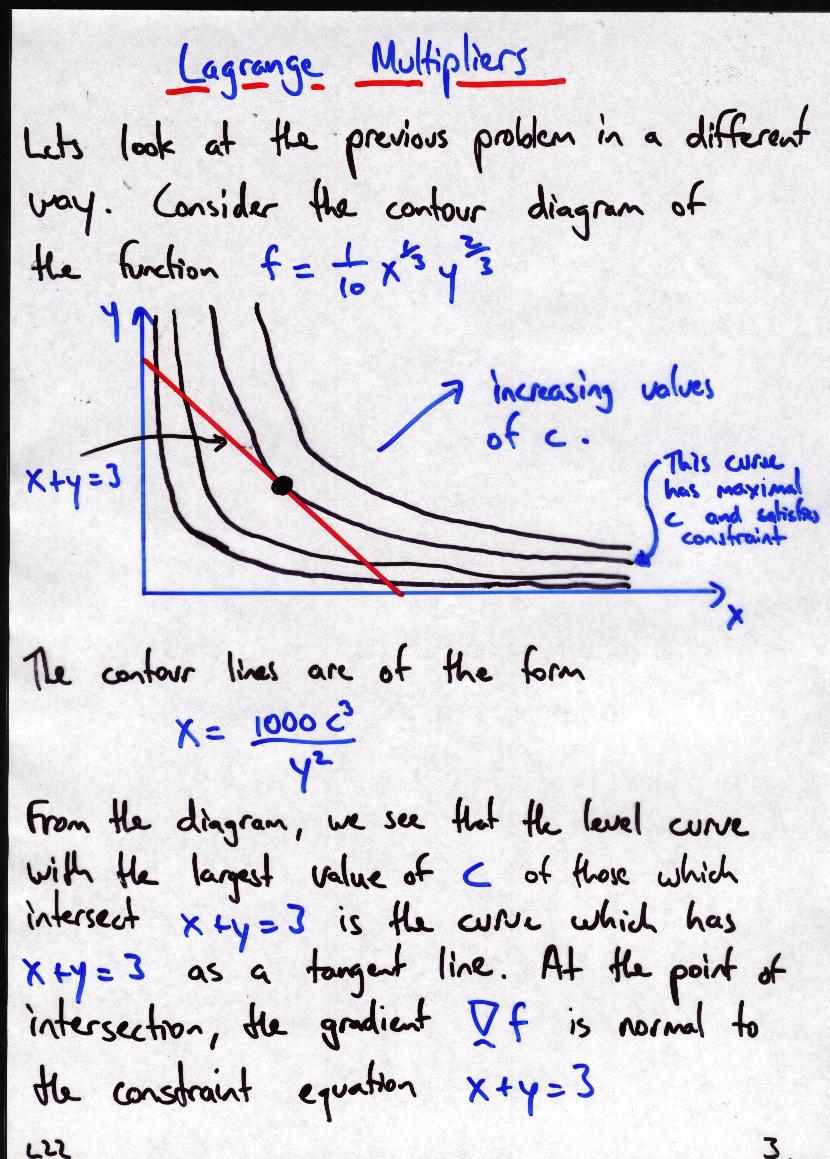 Lagrange Multipliers
Lets look at the previous problem in a different
way. Consider the contour diagram of
the function f = 1/10 x^1/3 y^2/3
y
increasing values
of c.
x+y=3
This curve
has maximal
c and satisfies
constraint
x
The contour lines are of the form
x = 1000 c^3 / y^2
From the diagram, we see that the level curve
with the largest value of c of those which
intersect x+y=3 is the curve which has
x+y=3 as a tangent line. At the point of
intersection, the gradient ∇f is normal to
the constraint equation x+y=3
L22 3